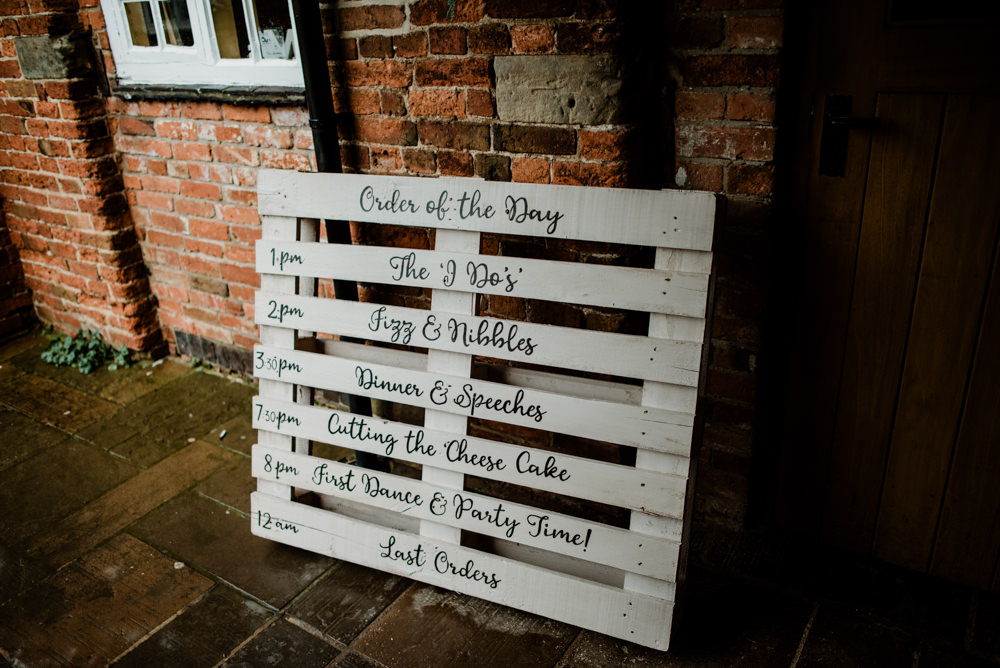 Order of the Day
1pm The 'I Do's'
2pm Fizz & Nibbles
330pm Dinner & Speeches
730pm Cutting the 'Cheese Cake
8pm First Dance & Party Time!
12am Last Orders